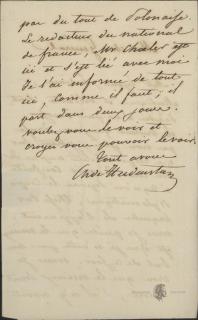 pas du tout de Polonaise.
Le redacteur du national
de france, Mr Charles est
ici et s'est lié avec moi
Je l'ai informé de tout
ici, comme il faut; il
part dans deux jours.
voulez vous le voir et
croyez vous pouvoir le voir.
Tout à vous